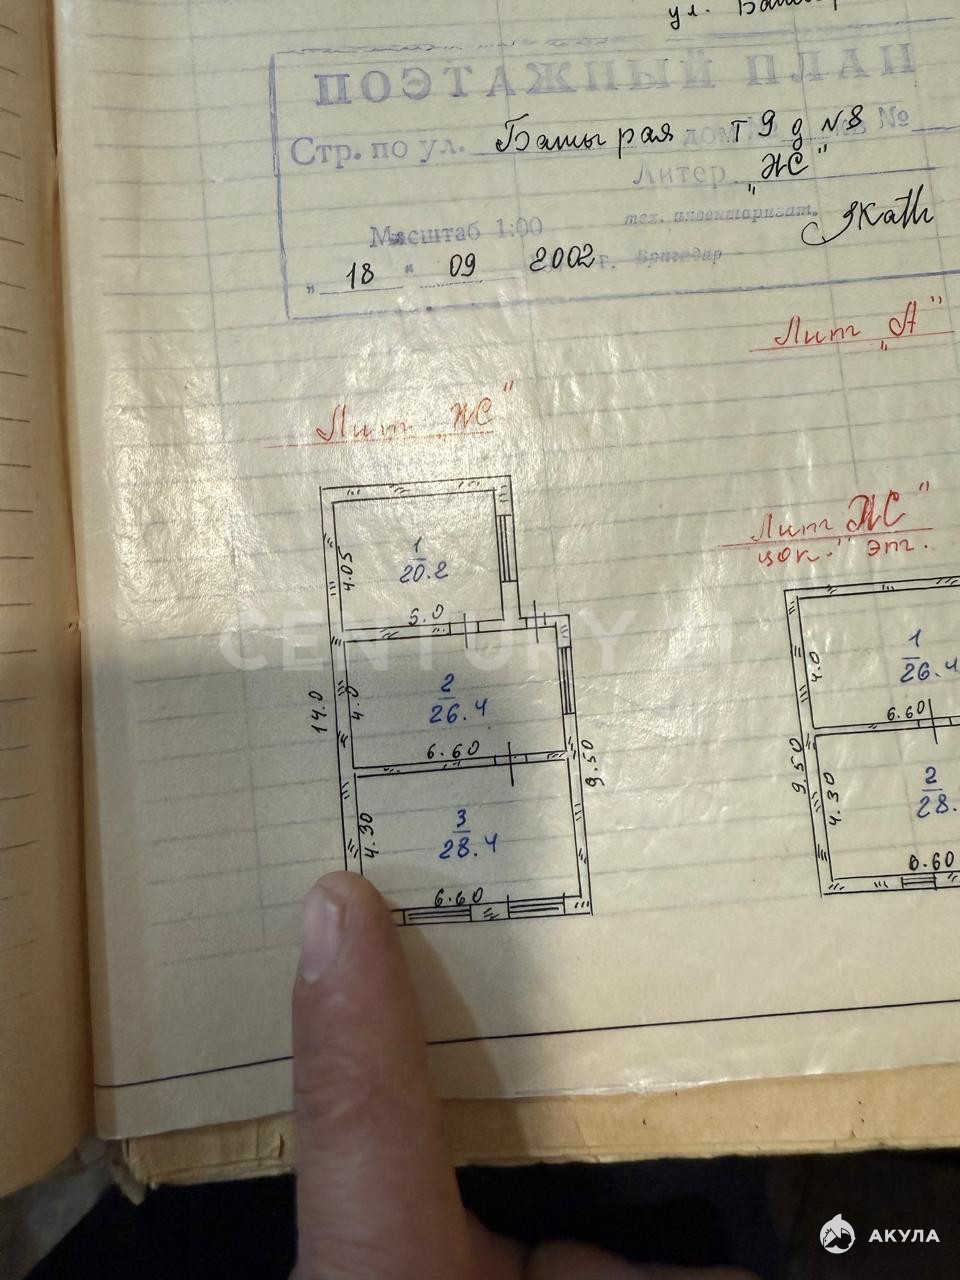 ул.
ПОЭТАЖНЫЙ ПЛАН
Стр. по ул. Батырая Т 9 д N 8 №
Литер „ЖС"
Масштаб 1:00 тех. инвентаризат.
„ 18 " 09 2002 г. Бригадир
Лит „А"
Лит „ЖС"
1
20.2
4.05
5.0
Лит ЖС"
цок." эт.
CENTURY 21
2
26.4
4.0
14.0
6.60
9.50
3
28.4
4.30
6.60
1
26.4
4.0
6.60
9.50
2
28.
4.30
6.60
АКУЛА